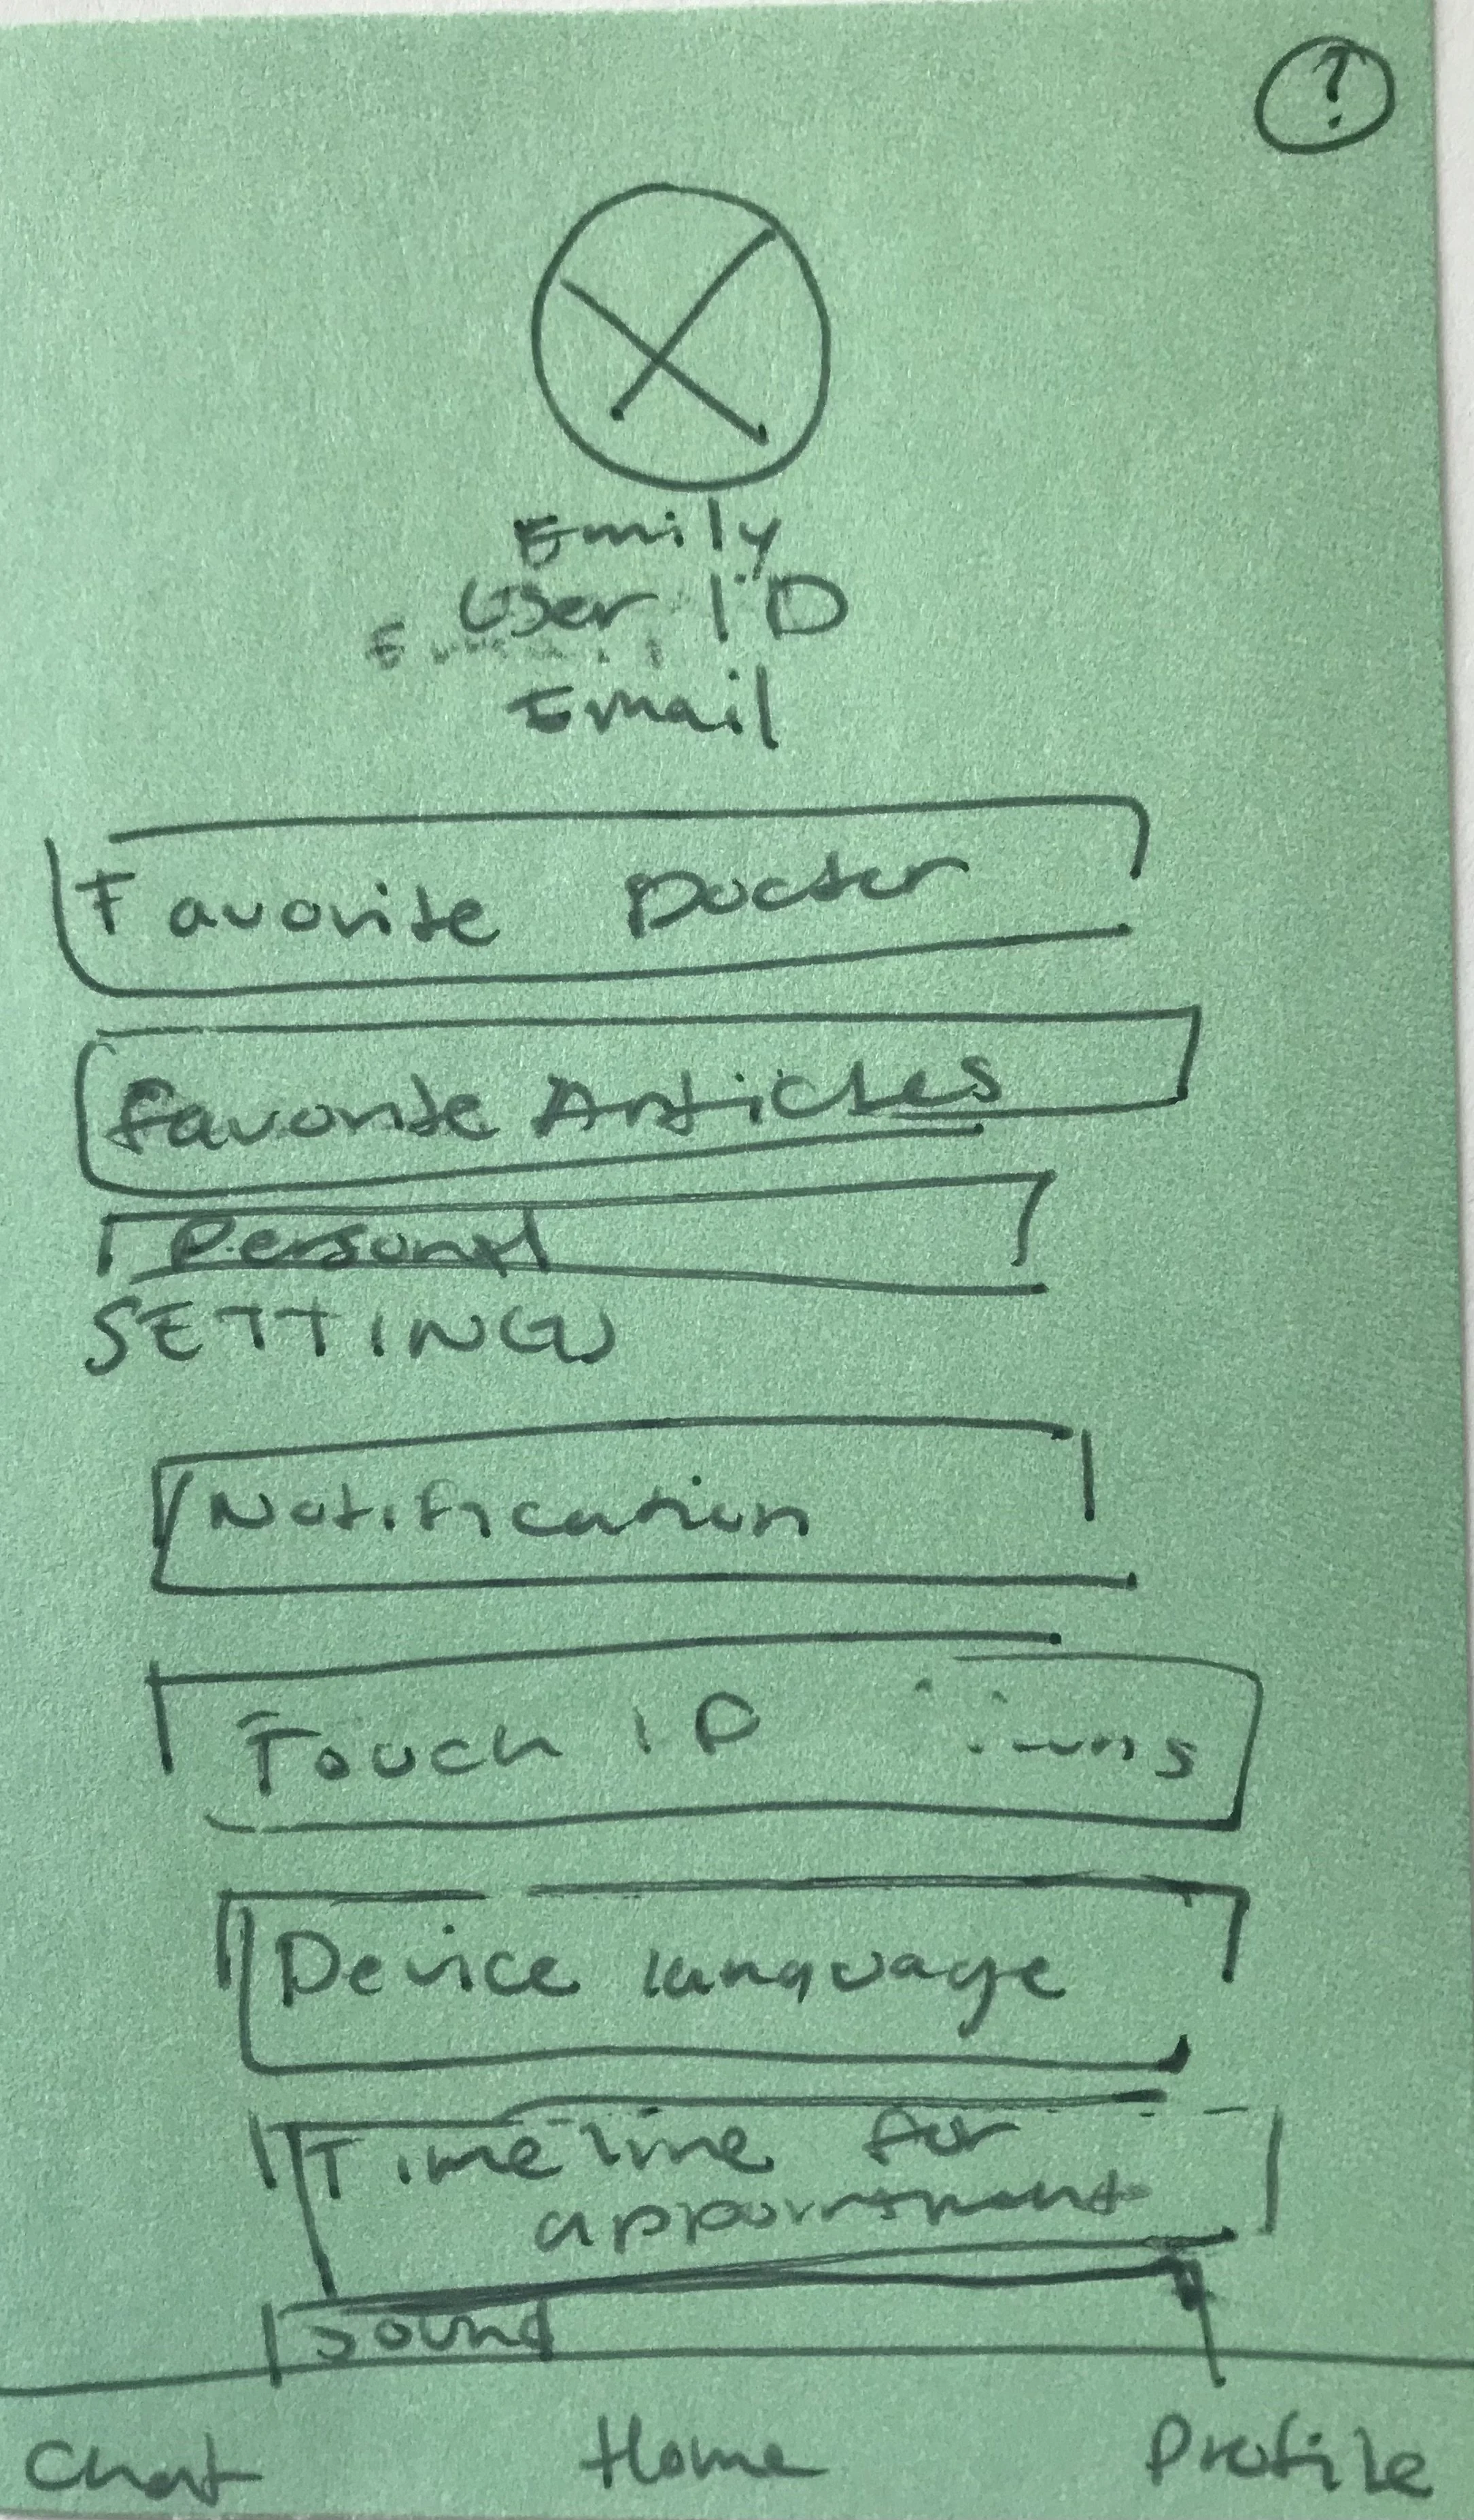 ?
Emily
User ID
Email
Favorite Doctor
Favorite Articles
Personal
SETTINGS
Notification
Touch ID
Device language
Timeline for
appointment
Sound
Chat Home Profile